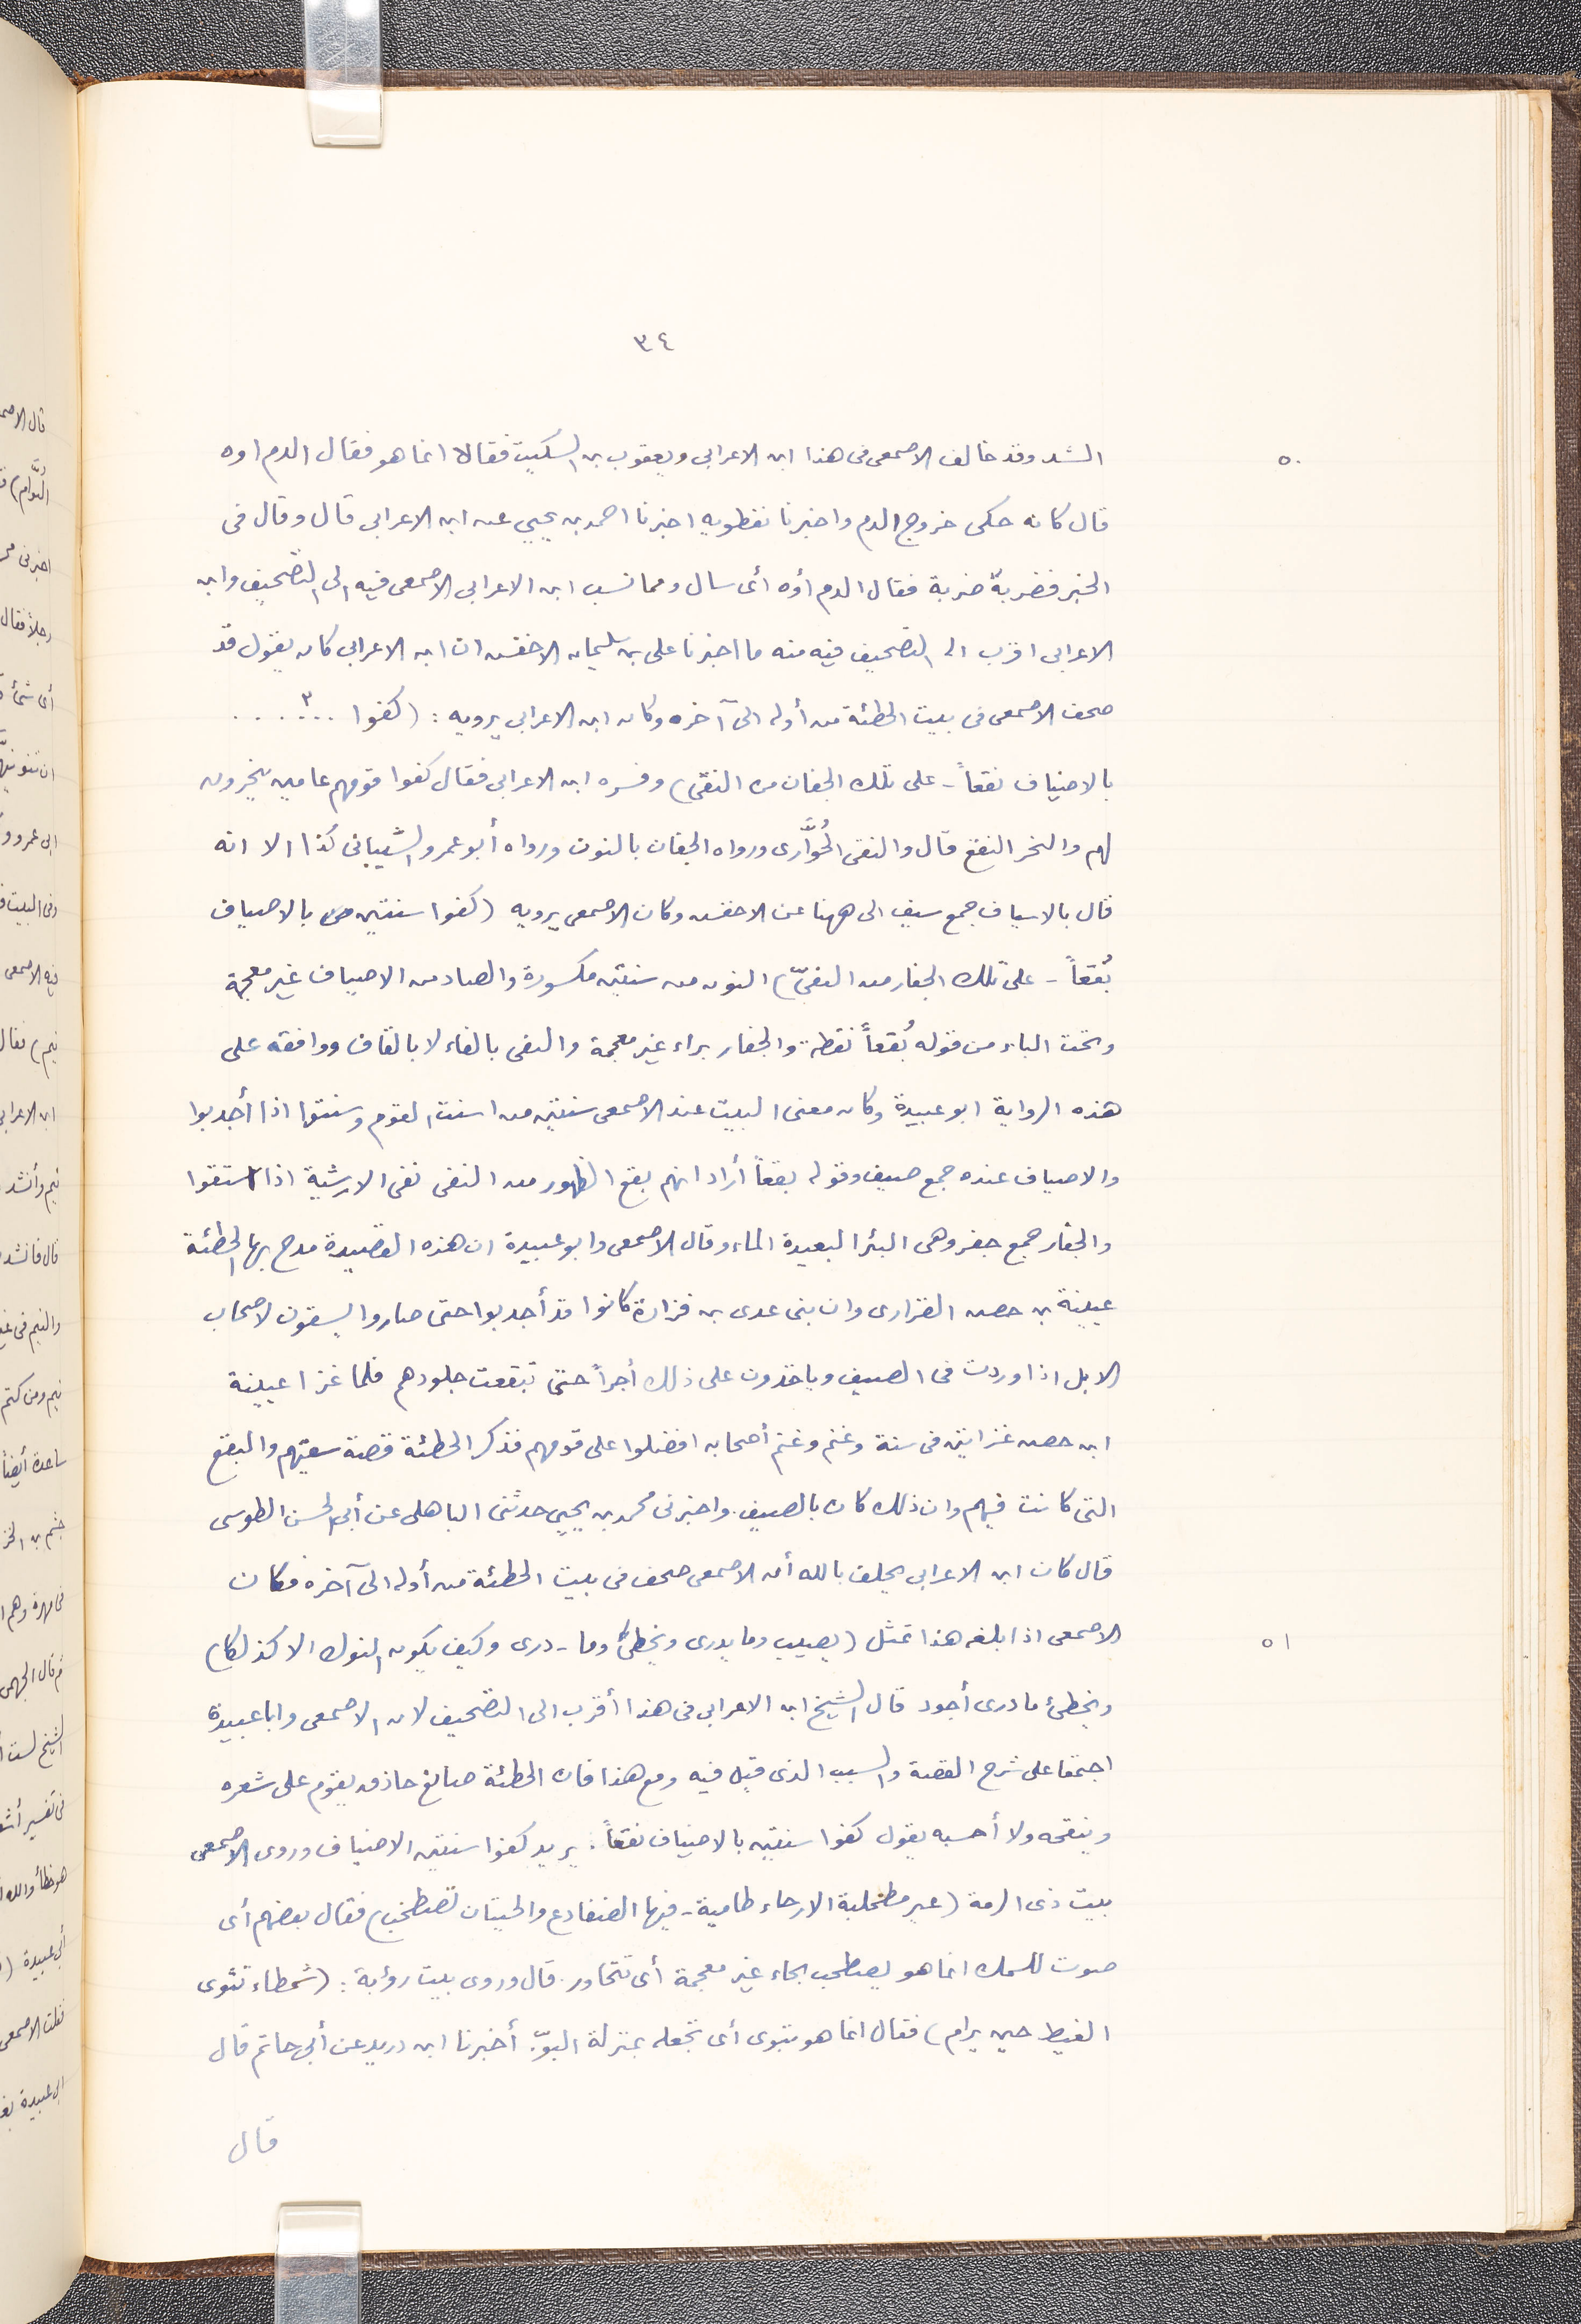 ٣٤
٥٠
الشد وقد خالف الاصمعى فى هذا ابن الاعرابى ويعقوب بن السكيت فقالا انما هو فقال الدم اوه
قال كانه حكى خروج الدم واخبرنا نفطويه اخبرنا احمد بن يحيى عن ابن الاعرابى قال وقال فى
الخبر فضربهٔ ضربة فقال الدم أوه أى سال ومما نسب ابن الاعرابى الاصمعى فيه الى التصحيف وابن
الاعرابى اقرب الى التصحيف فيه منه ما اخبرنا على بن سليمان الاخفش ان ابن الاعرابى كان يقول قد
صحف الاصمعى فى بيت الحطئة من أوله الى آخره وكان ابن الاعرابى يرويه : (كفوا ...٣...
بالاضياف نقعاً - على تلك الجفان من النقىّ) وفسره ابن الاعرابى فقال كفوا قومهم عامين ينحرون
لهم والنحر النقع قال والنقى الحُوَّارى ورواه الجفان بالنون ورواه أبو عمرو الشَّيبانى كذا الا انه
قال بالاسياف جمع سيف الى ههنا عن الاخفش وكان الاصمعى يرويه (كفوا سنتين بالاصياف
بُقعاً - على تلك الجفار من النفىّ) النون من سنتين مكسورة والصاد من الاصياف غير معجمة
وتحت الباء من قوله بُقعاً نقطة والجفار براء غير معجمة والنفى بالفاء لا بالقاف ووافقه على
هذه الرواية ابو عبيدة وكان معنى البيت عند الاصمعى سنتين من اسنت القوم وسنتوا اذا أجدبوا
والاصياف عنده جمع صيف وقوله بقعاً أراد انهم بقع الظهور من النفى نفى الارشية اذا استقوا
والجفار جمع جفر وهى البئر البعيدة الماء وقال الاصمعى وابو عبيدة ان هذه القصيدة مدح بها الحطئة
عيينة بن حصن الفزارى وان بنى عدى بن فزارة كانوا قد أجدبوا حتى صاروا يسقون لاصحاب
الابل اذا وردت فى الصيف وياخذون على ذلك أجراً حتى تبقعت جلودهم فلما غزا عيينة
ابن حصن غزاتين فى سنة وغنم وغنم أصحابه افضلوا على قومهم فذكر الحطئة قصة سقيهم والبقع
التى كانت فيهم وان ذلك كان بالصيف. واخبرنى محمد بن يحيى حدثنى الباهلى عن أبى الحسن الطوسى
قال كان ابن الاعرابى يحلف بالله أن الاصمعى صحف فى بيت الحطئة من أوله الى آخره فكان
٥١
الاصمعى اذا بلغه هذا تمثل (يصيب وما يدرى ويخطئُ وما - درى وكيف يكون النوك الا كذلكا)
ويخطئ ما درى أجود قال الشيخ ابن الاعرابى فى هذا أقرب الى التصحيف لان الاصمعى وابا عبيدة
اجتمعا على شرح القصة والسبب الذى قيل فيه ومع هذا فان الحطئة صانع حاذق يقوم على شعره
وينقحه ولا أحسبه يقول كفوا سنتين بالاضياف نقعاً. يريد كفوا سنتين الاضياف وروى الاصمعى
بيت ذى الرمة (عير مطحلبة الارجاء طامية - فيها الضفادع والحيتان تصطخب) فقال بعضهم أى
صوت للسمك انما هو يصطحب بحاء غير معجمة أى تتجاور. قال وروى بيت رؤبة : (شمطاء تنوى
الغيط حين يرام) فقال انما هو تبوى أى تجعله بمنزلة البوّ. أخبرنا ابن دريد عن أبى حاتم قال
قال